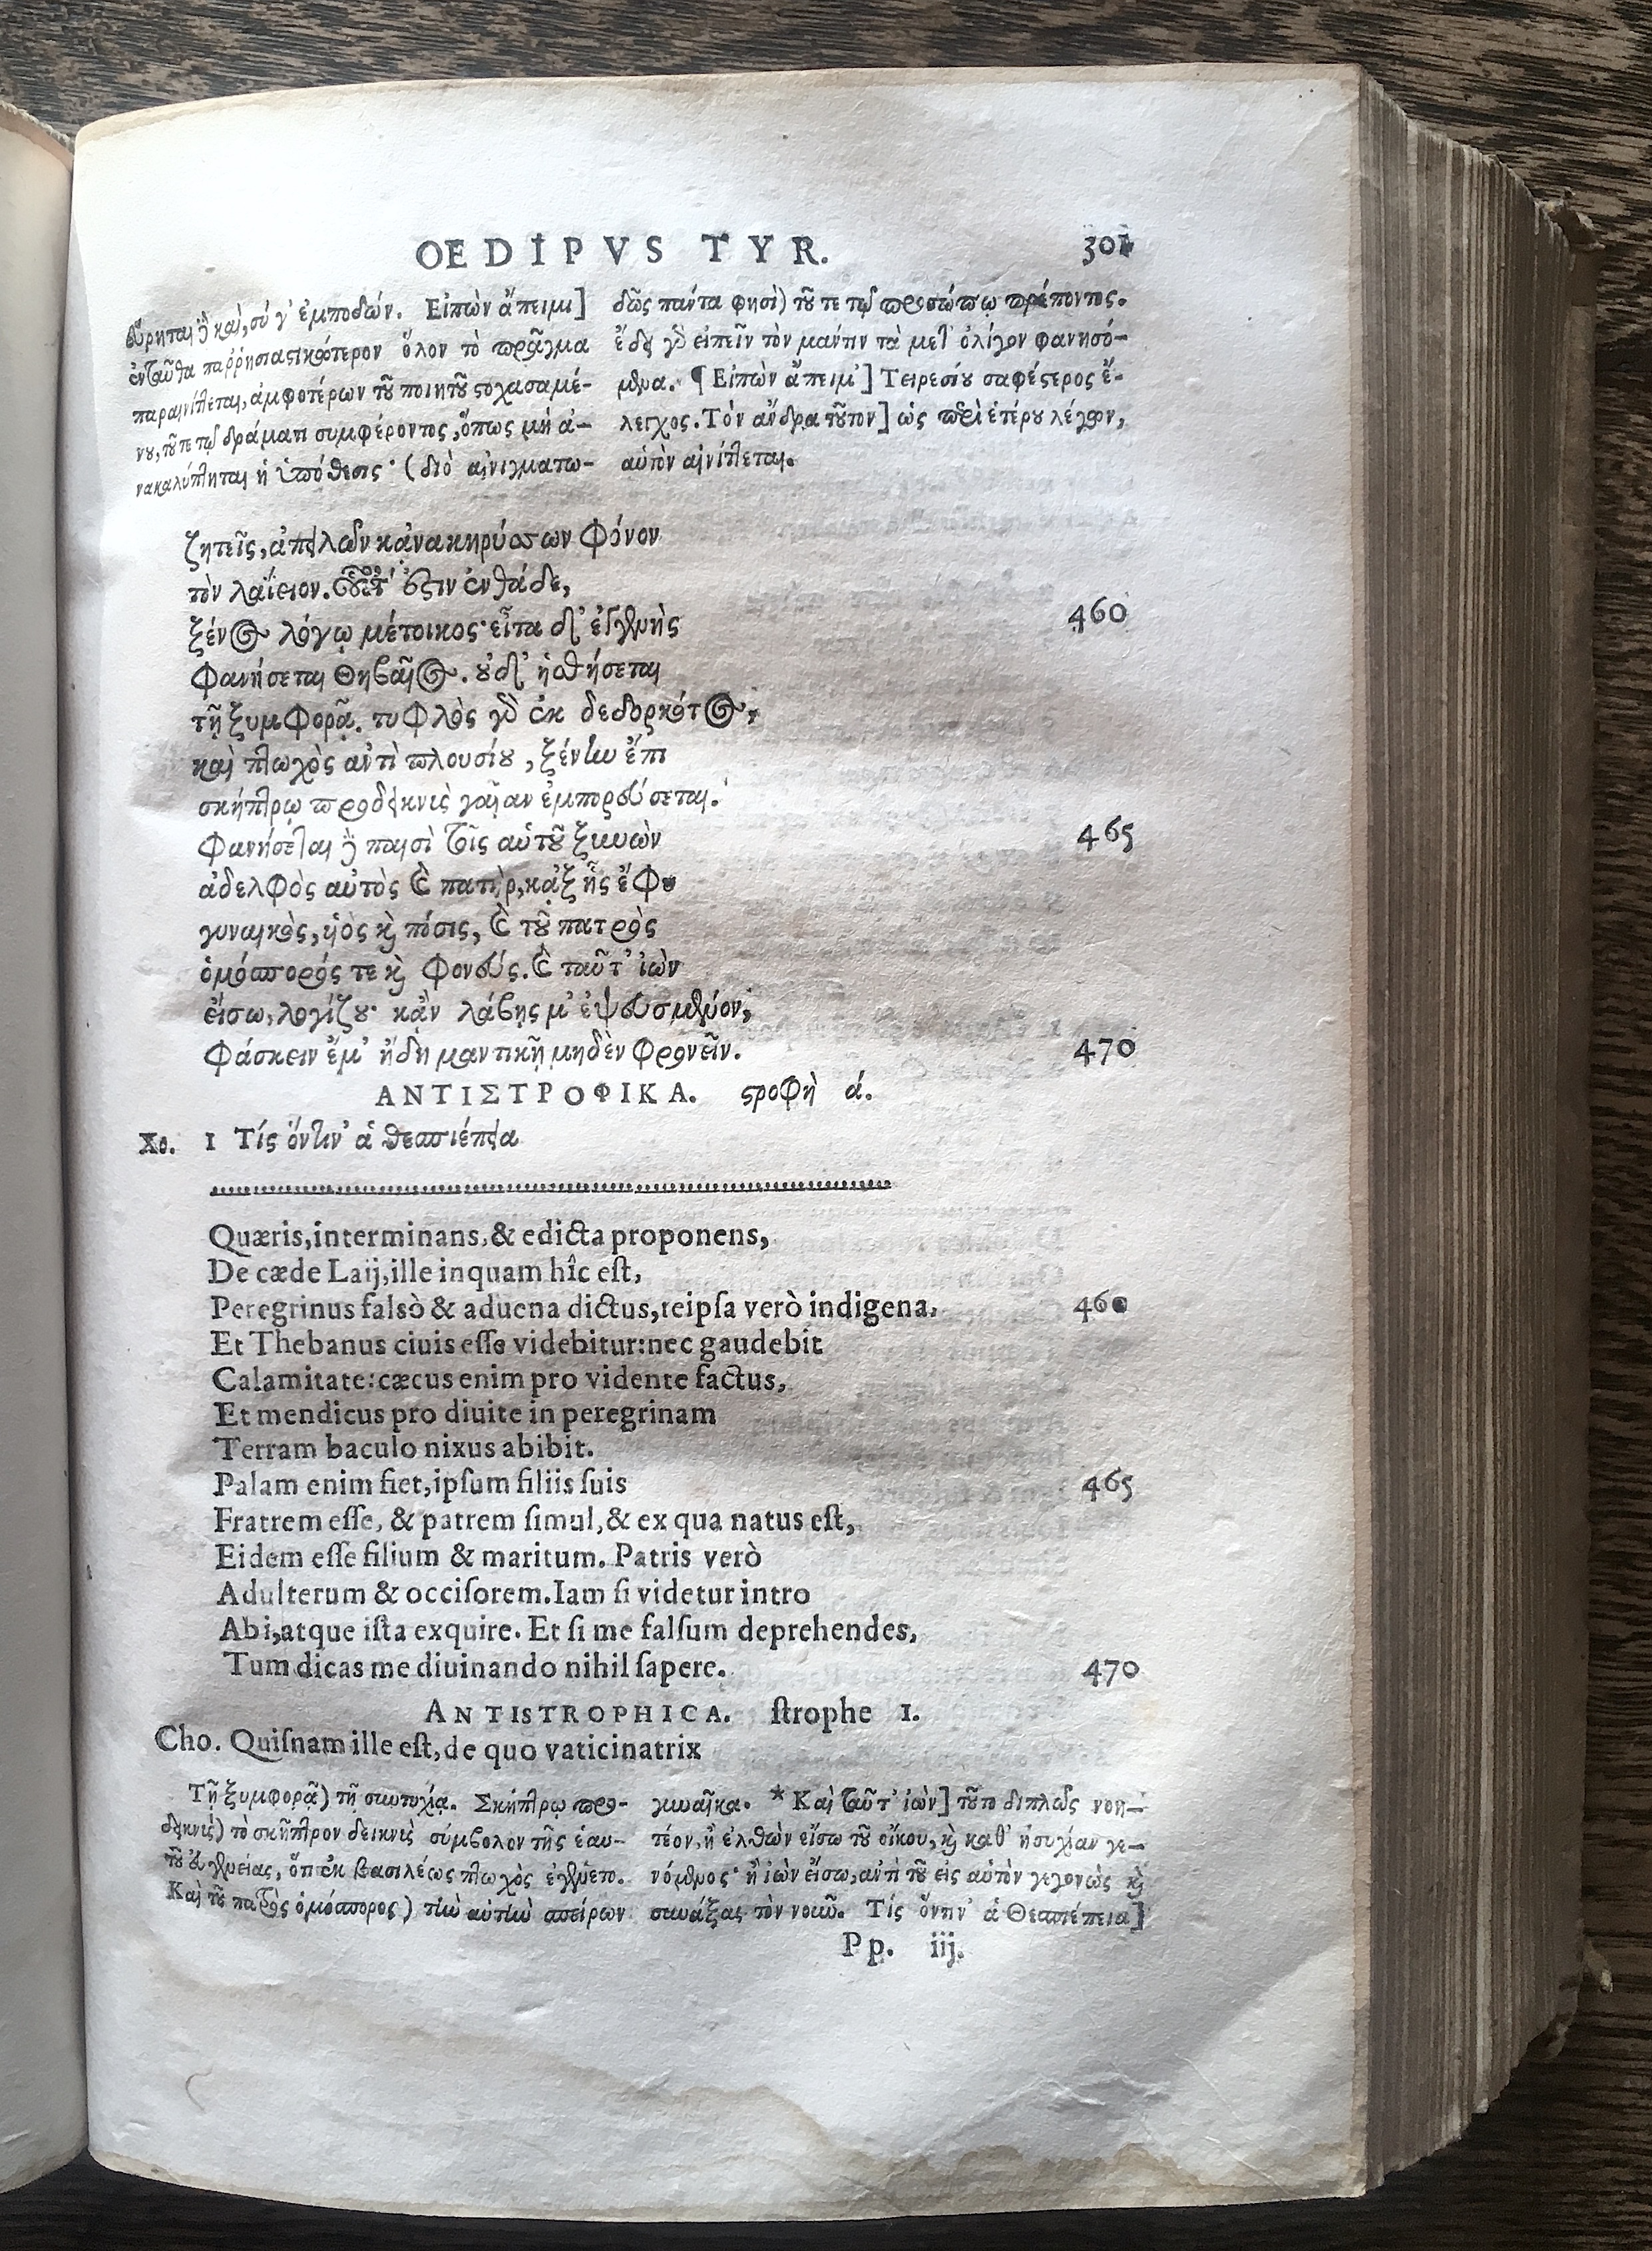 OEDIPVS TYR. 301
εὕρηται δὲ καὶ, σύ γ' ἐμποδών. Εἰπὼν ἄπειμι]
ἐνταῦθα παῤῥησιαστικώτερον ὅλον τὸ πρᾶγμα
παραινίττεται, ἀμφοτέρων τοῦ ποιητοῦ στοχασαμέ-
νου, τοῦ τε τῷ δράματι συμφέροντος, ὅπως μὴ ἀ-
νακαλύπτηται ἡ ὑπόθεσις· (διὸ αἰνιγματω-
δῶς πάντα φησὶ) τοῦ τε τῷ προσώπῳ πρέποντος.
ἔδει γὰρ εἰπεῖν τὸν μάντιν τὰ μετ' ὀλίγον φανησό-
μενα. ¶ Εἰπὼν ἄπειμ'] Τειρεσίου σαφέστερος ἔ-
λεγχος. Τὸν ἄνδρα τοῦτον] ὡς περὶ ἑτέρου λέγων,
αὐτὸν αἰνίττεται.
ζητεῖς, ἀπειλῶν κἀνακηρύσσων φόνον
τὸν λαΐειον. οὗτός ἐστιν ἐνθάδε,
ξένος λόγῳ μέτοικος· εἶτα δ' ἐγγενὴς 460
φανήσεται Θηβαῖος. οὐδ' ἡσθήσεται
τῇ ξυμφορᾷ. τυφλὸς γὰρ ἐκ δεδορκότος,
καὶ πτωχὸς ἀντὶ πλουσίου, ξένην ἔπι
σκήπτρῳ προδεικνὺς γαῖαν ἐμπορεύσεται.
φανήσεται δὲ παισὶ τοῖς αὑτοῦ ξυνὼν 465
ἀδελφὸς αὐτὸς καὶ πατὴρ, κἀξ ἧς ἔφυ
γυναικὸς, υἱὸς καὶ πόσις, καὶ τοῦ πατρὸς
ὁμόσπορός τε καὶ φονεύς. καὶ ταῦτ' ἰὼν
εἴσω, λογίζου· κἂν λάβῃς μ' ἐψευσμένον,
φάσκειν ἔμ' ἤδη μαντικῇ μηδὲν φρονεῖν. 470
ΑΝΤΙΣΤΡΟΦΙΚΑ. στροφὴ ά.
Χο. 1 Τίς ὅντιν' ἁ θεσπιέπεια
Quæris, interminans, & edicta proponens,
De cæde Laij, ille inquam hîc est,
Peregrinus falsò & aduena dictus, reipsa verò indigena, 460
Et Thebanus ciuis esse videbitur: nec gaudebit
Calamitate: cæcus enim pro vidente factus,
Et mendicus pro diuite in peregrinam
Terram baculo nixus abibit.
Palam enim fiet, ipsum filiis suis 465
Fratrem esse, & patrem simul, & ex qua natus est,
Eidem esse filium & maritum. Patris verò
Adulterum & occisorem. Iam si videtur intro
Abi, atque ista exquire. Et si me falsum deprehendes,
Tum dicas me diuinando nihil sapere. 470
ANTISTROPHICA. strophe 1.
Cho. Quisnam ille est, de quo vaticinatrix
Τῇ ξυμφορᾷ) τῇ συντυχίᾳ. Σκήπτρῳ προ-
δεικνὺς) τὸ σκῆπτρον δεικνὺς σύμβολον τῆς ἑαυ-
τοῦ εὐγενείας, ὅτι ἐκ βασιλέως πτωχὸς ἐγένετο.
Καὶ τοῦ πατρὸς ὁμόσπορος) τὴν αὐτὴν σπείρων
γυναῖκα. * Καὶ ταῦτ' ἰὼν] τοῦτο διπλῶς νοη-
τέον, ἢ ἐλθὼν εἴσω τοῦ οἴκου, καὶ καθ' ἡσυχίαν γε-
νόμενος· ἢ ἰὼν εἴσω, ἀντὶ τοῦ εἰς αὐτὸν γεγονὼς καὶ
συνάξας τὸν νοῦν. Τίς ὅντιν' ἁ Θεσπιέπεια]
Pp. iij.